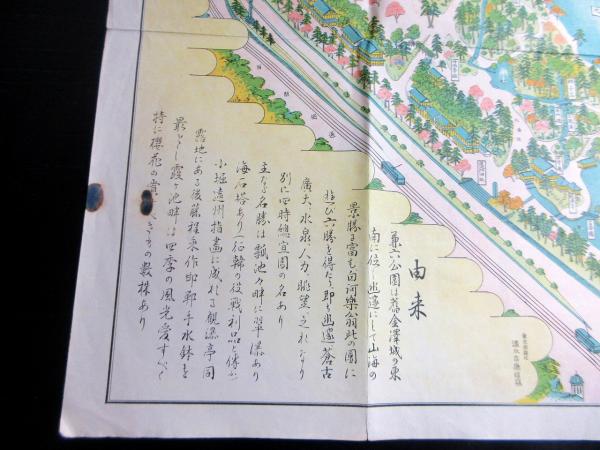 由来
兼六公園は舊金澤城の東
南に位し幽邃にして山海の
景勝に富む白河樂翁此の園に
遊び六勝を得たり即ち幽邃蒼古
廣大水泉人力眺望之れなり
別に四時總宜園の名あり
主なる名勝は瓢池々畔に翠瀑あり
海石塔あり(征韓の役戦利品と傳ふ
小堀遠州指畫に成れる観瀑亭同
露地にある後藤程乗作邯鄲手水鉢を
最とし霞ヶ池畔は四季の風光愛すべく
特に櫻花の貴
きもの数株あり